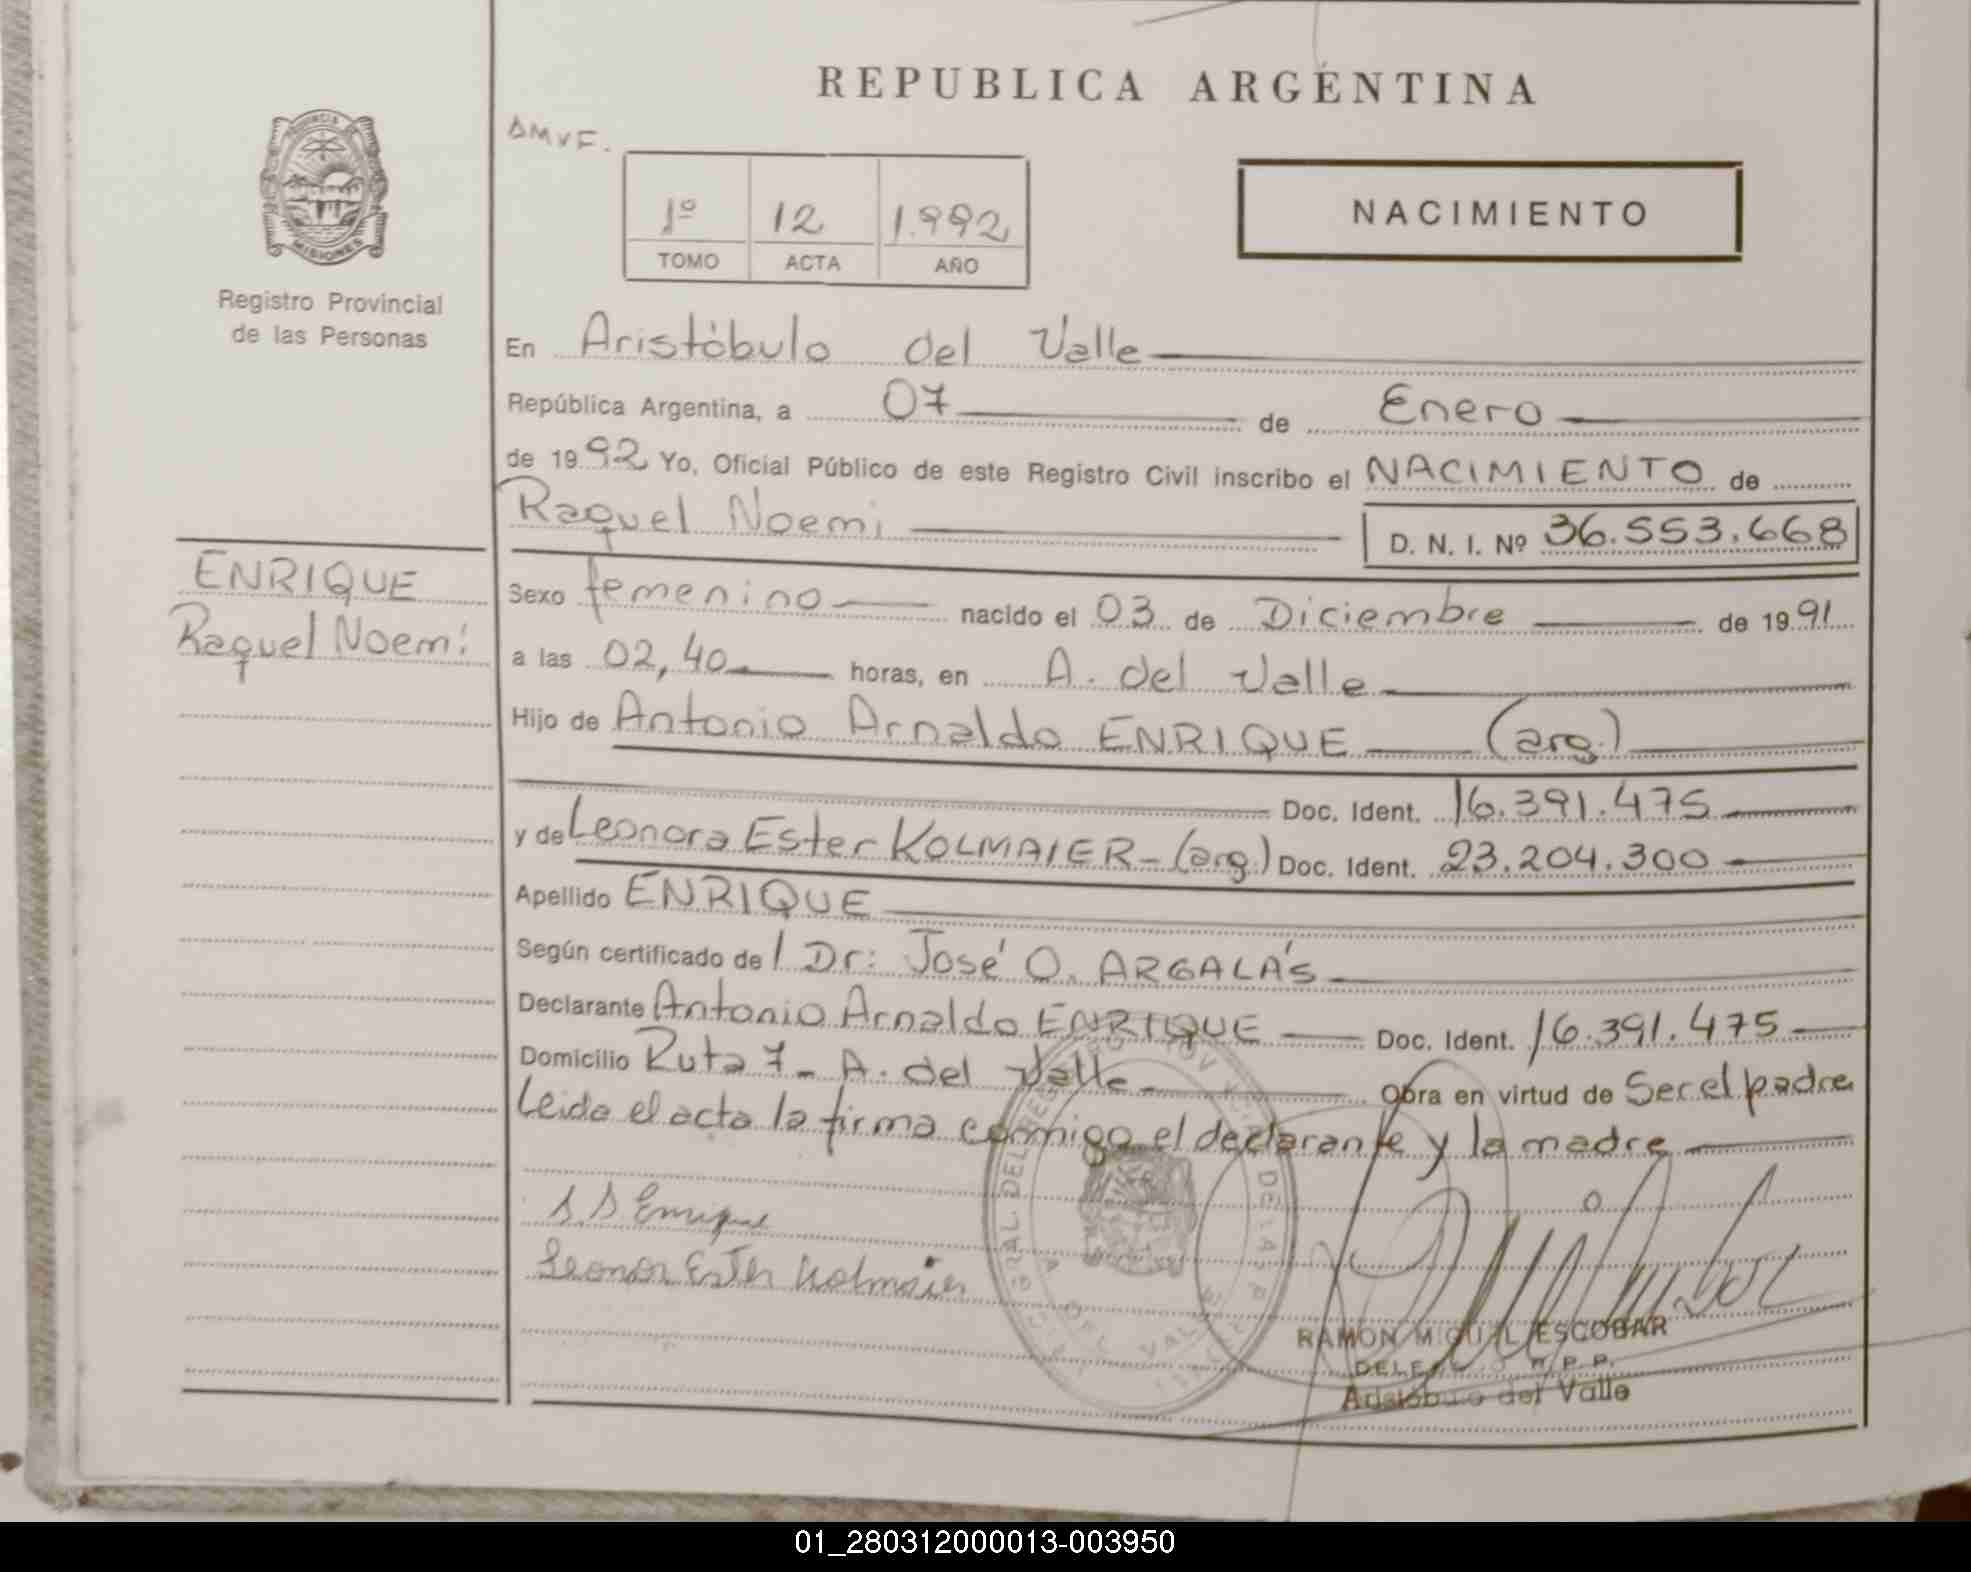 REPUBLICA ARGENTINA
DMVF.
1º 12 1.992
TOMO ACTA AÑO
NACIMIENTO
PROVINCIA DE
MISIONES
Registro Provincial
de las Personas
En Aristóbulo del Valle
República Argentina, a 07 de Enero
de 1992 Yo, Oficial Público de este Registro Civil inscribo el NACIMIENTO de
Raquel Noemi D. N. I. Nº 36.553.668
ENRIQUE
Raquel Noemi
Sexo femenino nacido el 03 de Diciembre de 1991
a las 02,40 horas, en A. del Valle
Hijo de Antonio Arnaldo ENRIQUE (arg.)
Doc. Ident. 16.391.475
y de Leonora Ester KOLMAIER - (arg.) Doc. Ident. 23.204.300
Apellido ENRIQUE
Según certificado de / Dr: José O. ARGALA'S
Declarante Antonio Arnaldo ENRIQUE Doc. Ident. 16.391.475
Domicilio Ruta 7 - A. del Valle Obra en virtud de Ser el padre
Leida el acta la firma conmigo el declarante y la madre
A A Enrique
Leonor Ester Kolmaier
RAMON MIGUEL ESCOBAR
DELEGADO R.P.P.
Aristóbulo del Valle
01_280312000013-003950